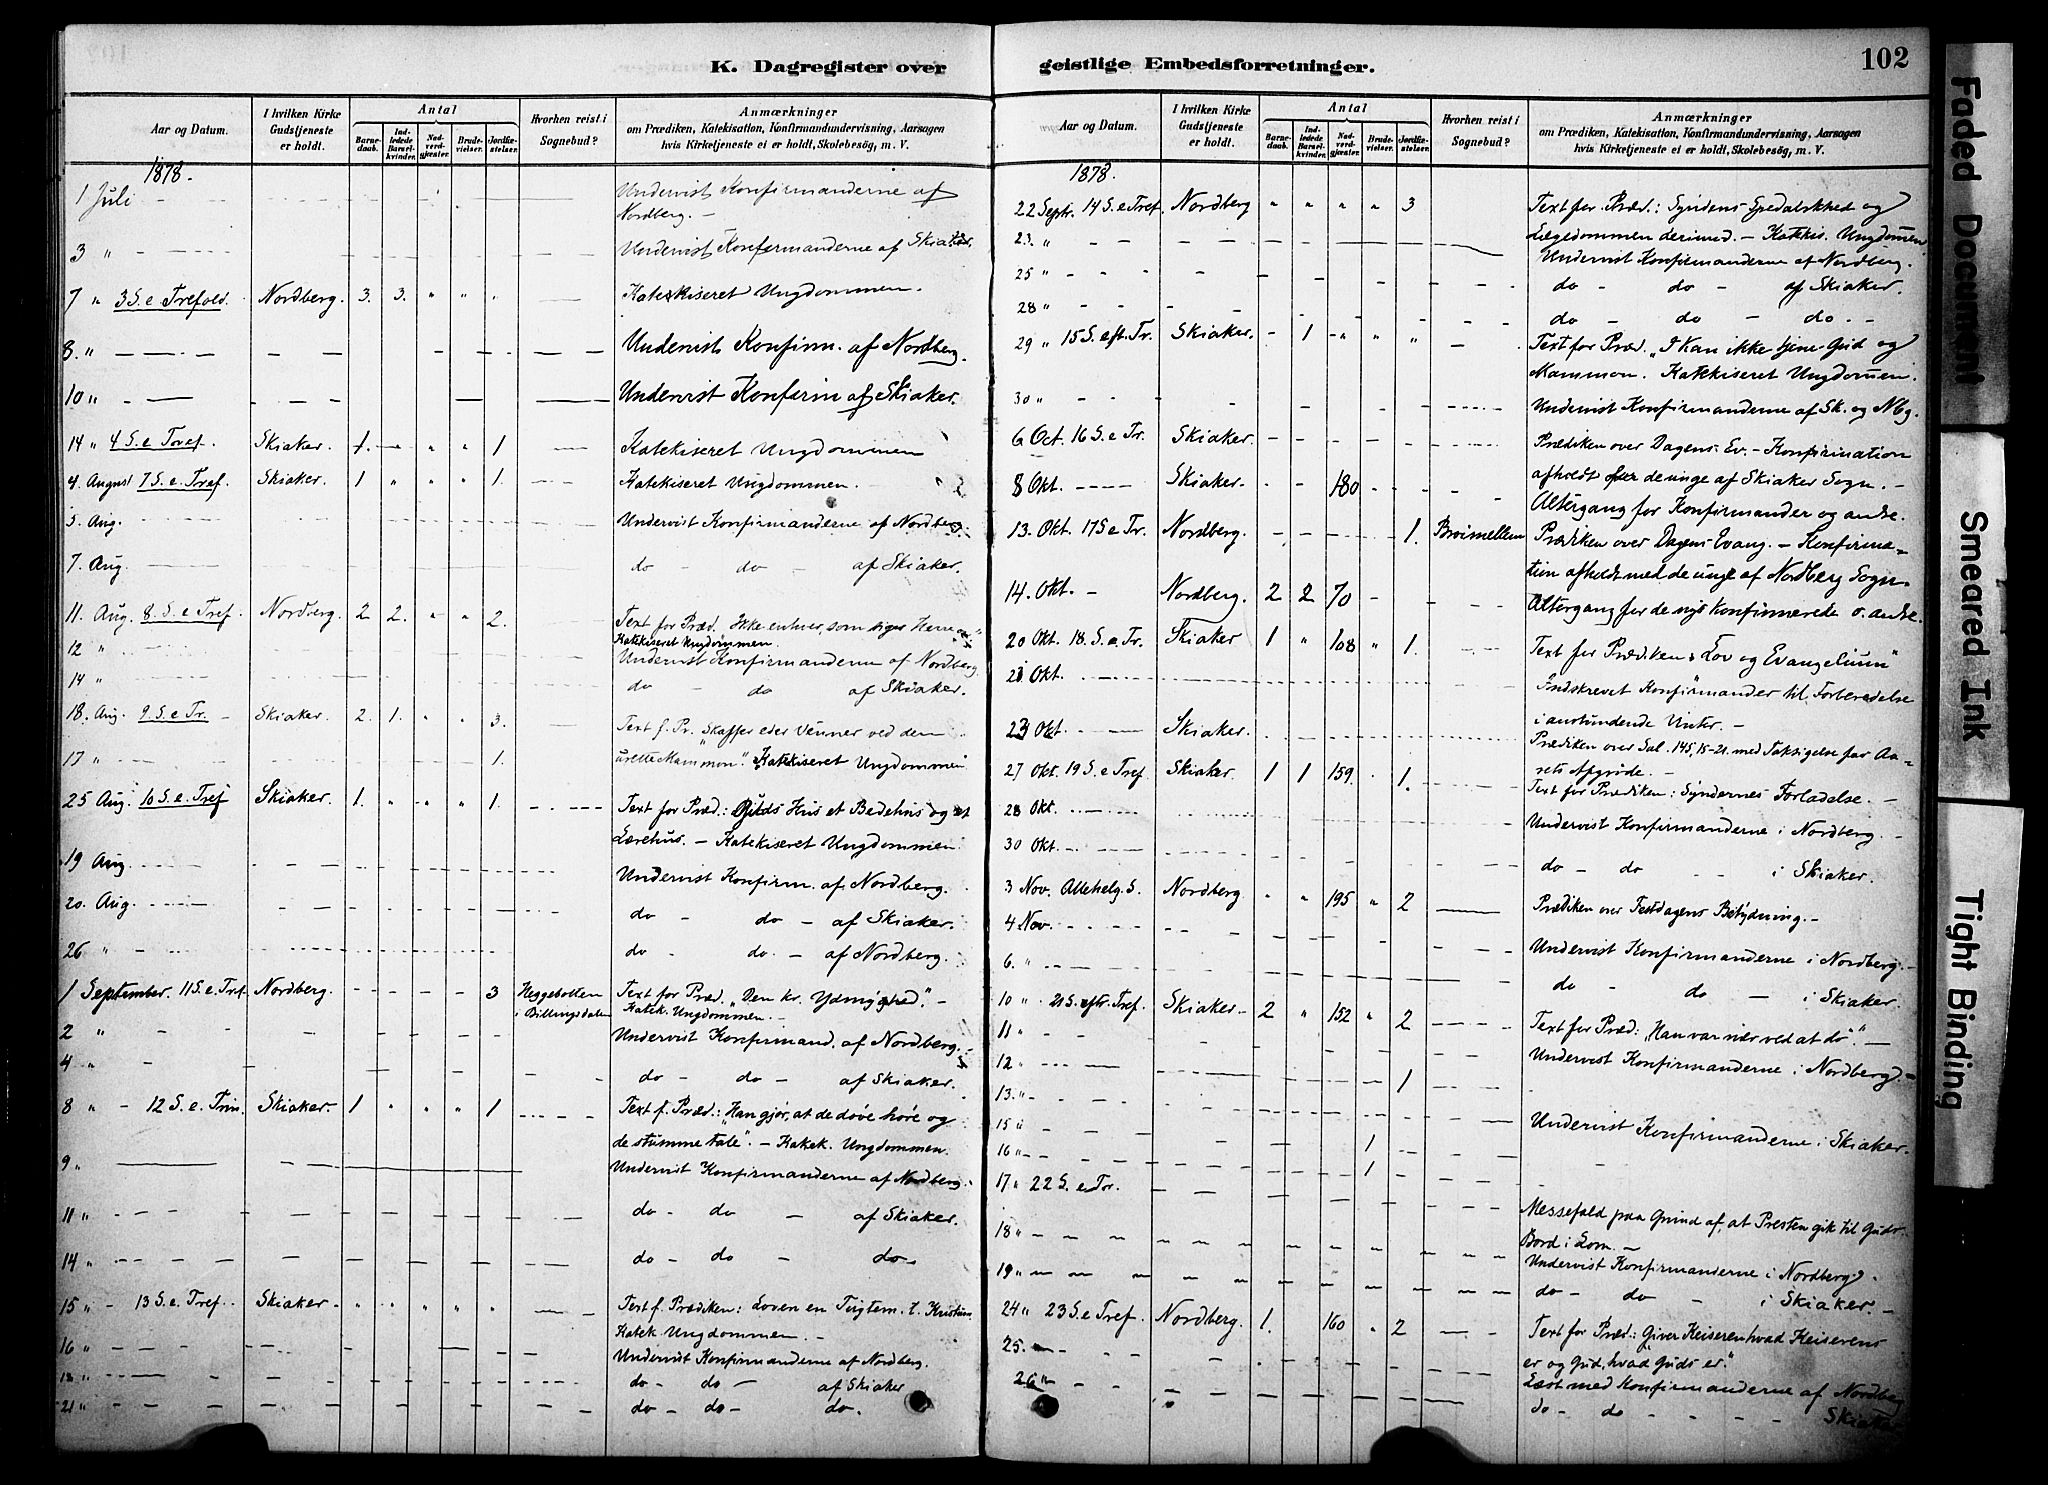 K. Dagregister over
Aar og Datum.
I hvilken Kirke Gudstjeneste er holdt.
Antal
Barne-daab.
Ind-ledede Barsel-kvinder.
Nad-verd-gjæster.
Brude-vielser.
Jordfæ-stelser.
Hvorhen reist i Sognebud?
Anmærkninger
om Prædiken, Katekisation, Konfirmandundervisning, Aarsagen
hvis Kirketjeneste ei er holdt, Skolebesög, m. V.
1878.
1 Juli Undervist Konfirmanderne af
Nordberg. -
3 " Undervist Konfermanderne af Skiaker.
7 " 3 S. e Trefold. Nordberg. 3. 3. " " " Katekiseret Ungdommen.
8. " Undervist Konfirm. af Nordberg.
10 " Undervist Konfirm af Skiaker.
14 " 4 S. e Tref. Skiaker. 1. - " " 1 Katekiseret Ungdommen
4. August 7 S. e Tref. Skiaker. 1 " " " 1. Katekiseret Ungdommen.
5. Aug. Undervist Konfirmanderne af Nordberg.
7. Aug. do - do - af Skiaker.
11. Aug. 8. S. e Tref. Nordberg. 2 2. " " 2. Text for Præd. Ikke enhver, som siger Herre
Katekiseret Ungdommen.
12 " Undervist Konfirmanderne af Nordberg
14 " do - do af Skiaker.
18. Aug. 9. S. e Tr. - Skiaker. 2. 1. " " 3. Text f. Pr. "Skaffer eder Venner ved den
17 " 1. urette Mammon". Katekiseret Ungdommen
25 Aug. 10 S. e. Tref Skiaker. 1. " " " 1. Text for Præd.: Guds Hus et Bedehus og et
Lærehus. - Katekiseret Ungdommen
19 Aug Undervist Konfirm. af Nordberg.
20. Aug. do - do - af Skiaker.
26 " do do. - af Nordberg.
1 September. 11 S. e. Tref Nordberg. 3 Heggebotten Text for Præd. "Den kr. Ydmyghed". -
i Billingsdalen Katek. Ungdommen. -
2 " Undervist Konfirmand. af Nordberg. -
4 " do - do - af Skiaker.
8 " - 12 S. e. Trin. Skiaker. 1 " " " 1 Text f. Præd.: "Han gjør, at de døve høre og
de stumme tale". - Katek. Ungdommen.
9 " Undervist Konfirmanderne af Nordberg.
11 " do - do - af Skiaker.
14 " do - do - do -
15 " - 13 S. e. Tref. Skiaker - " " " " " Text f. Prædiken: Loven en Tugtem. t. Kristum
Katek. Ungdommen. -
16 " Undervist Konfirmanderne af Nordberg.
18 " do - do - af Skiaker
21 " do - do - do.
geistlige Embedsforretninger.
102
Aar og Datum.
I hvilken Kirke Gudstjeneste er holdt.
Antal
Barne-daab.
Ind-ledede Barsel-kvinder.
Nad-verd-gjæster.
Brude-vielser.
Jordfæ-stelser.
Hvorhen reist i Sognebud?
Anmærkninger
om Prædiken, Katekisation, Konfirmandundervisning, Aarsagen
hvis Kirketjeneste ei er holdt, Skolebesög, m. V.
1878.
22 Septr. 14 S. e Tref. Nordberg " " " " 3 Text for Præd.: Syndens Spedalskhed og
23. " Lægedommen derimod. - Katekis. Ungdomen
25 " Undervist Konfirmanderne af Nordberg.
do - do - af Skiaker.
28 " do - do - do. -
29 " 15 S. eft. Tr. Skiaker. - 1 " " " - Text for Præd. "I kan ikke tjene Gud og
Mammon. Katekiseret Ungdomen.
30 " Undervist Konfirmanderne af Sk. og Nbg.
6 Oct. 16 S. e Tr. Skiaker. Prædiken over Dagens Ev. - Konfirmation
afholdt for de unge af Skiaker Sogn. -
8 Okt. Skiaker. 180 Altergang for Konfirmander og andre.
13. Okt. 17 S e Tr. Nordberg. 1. Brøimellem Prædiken over Dagens Evang. - Konfirma-
tion afholdt med de unge af Nordberg Sogn.
14. Okt. - Nordberg. 2 2 70 Altergang for de nys Konfirmerede o. andre.
20 Okt. 18. S. e Tr. Skiaker 1 " 108 " 1. Text for Prædiken: Lov og Evangelium"
21 Okt. Indskrevet Konfirmander til Forberedelse
i anstundende Vinter. -
23 Okt. Skiaker. Prædiken over Sal. 145, 15-21. med Taksigelse for Aa-
rets Afgrøde. -
27 Okt. 19 S. e Tref. Skiaker. 1 1 159 . 1. Text for Prædiken: Syndernes Forladelse. -
28 Okt. Undervist Konfirmanderne i Nordberg. -
30 Okt. do - do - - i Skiaker.
3 Nov. Allehelg. S. Nordberg " " 195 " 2 Prædiken over Festdagens Betydning. -
4 Nov. Undervist Konfirmanderne i Nordberg. -
6. " do - do - i Skiaker.
10 " . 21 S. eftr. Tref. Skiaker - 2 " 152 " 2 Text for Præd: "Han var nær ved at dø". -
11 " Undervist Konfirmanderne i Nordberg -
12 " 1
13. "
15 " Undervist Konfirmanderne i Skiaker.
16 " 1
17 " 22 S. e Tr. 1
Messefald paa Grund af, at Presten gik til Guds
18 " Bord i Lom. -
Undervist Konfirmanderne i Nordberg. -
19 " do - do - i Skiaker. -
24 " 23 S. e Tref. Nordberg. 1. 160 " 2 Text for Præd.: Giver Keiseren hvad Keiserens
25. " er og Gud, hvad Guds er."
26 " Læst med Konfirmanderne af Nordberg
do - do - - - - Skiaker
Faded Document
Smeared Ink
Tight Binding